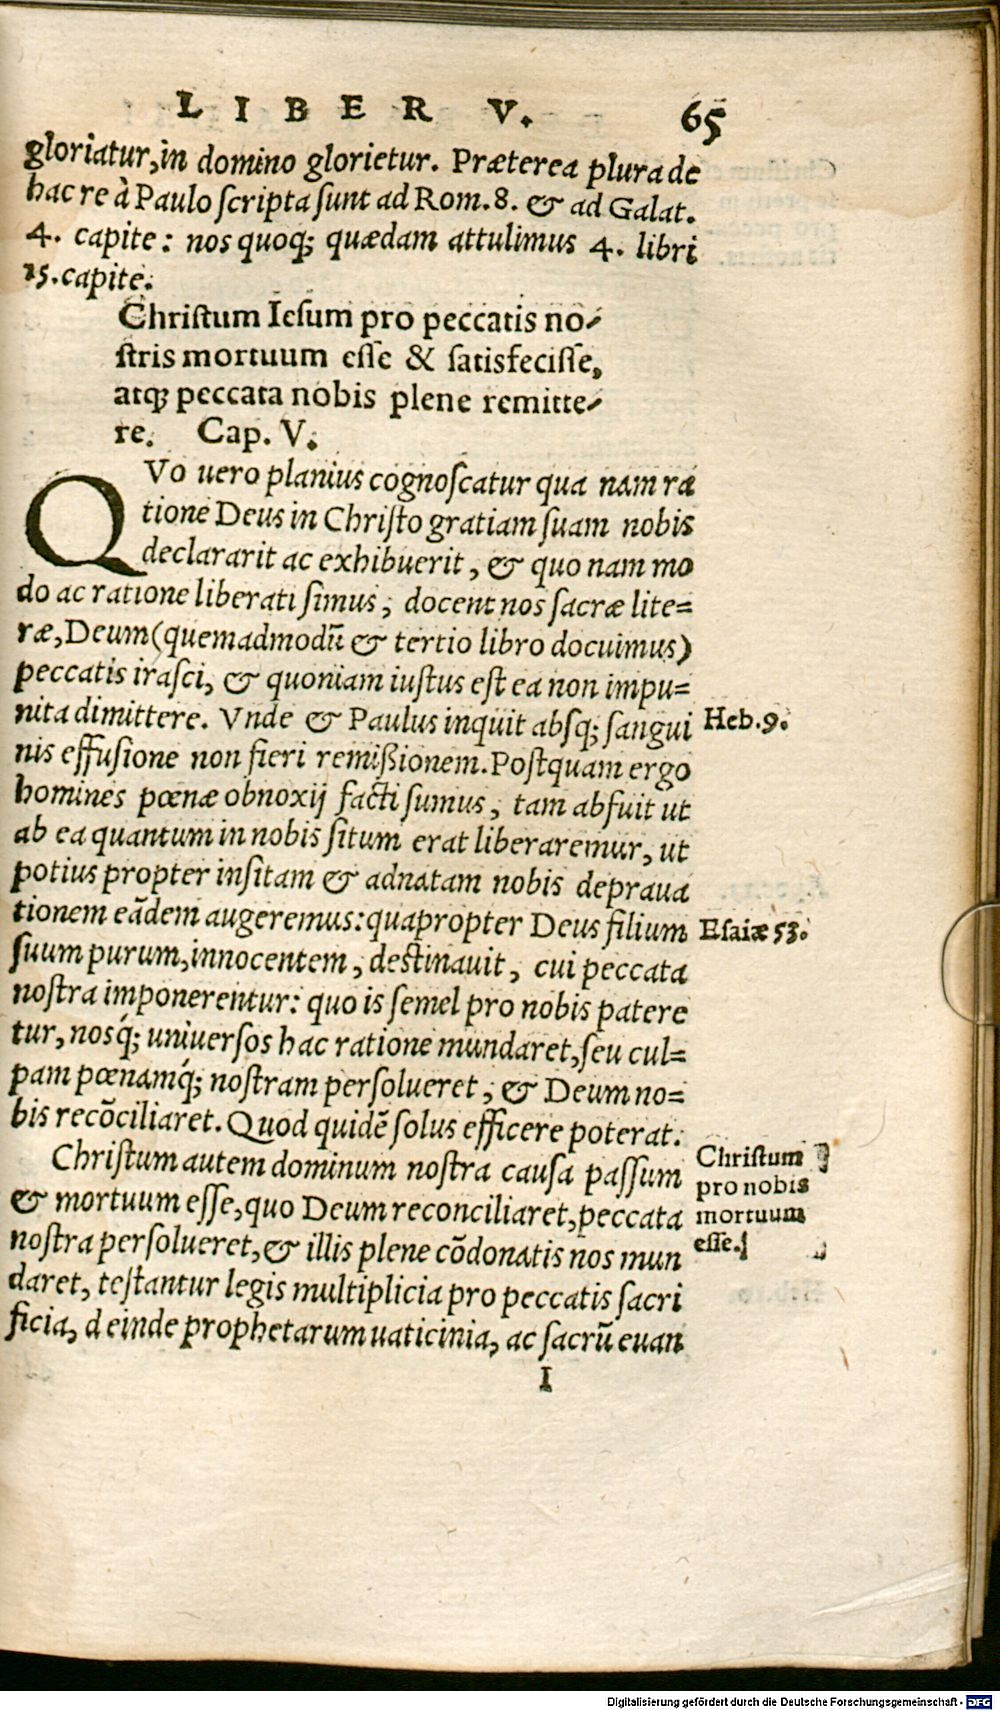 LIBER V. 65
gloriatur, in domino glorietur. Præterea plura de
hac re à Paulo ſcripta ſunt ad Rom. 8. & ad Galat.
4. capite: nos quoq; quædam attulimus 4. libri
15. capite.
Chriſtum Ieſum pro peccatis no-
ſtris mortuum eſſe & ſatisfeciſſe,
atq; peccata nobis plene remitte-
re. Cap. V.
QVo uero planius cognoſcatur qua nam ra
tione Deus in Chriſto gratiam ſuam nobis
declararit ac exhibuerit, & quo nam mo
do ac ratione liberati ſimus, docent nos ſacræ lite=
ræ, Deum (quemadmodū & tertio libro docuimus)
peccatis iraſci, & quoniam iuſtus eſt ea non impu=
nita dimittere. Vnde & Paulus inquit abſq; ſangui
Heb. 9.
nis effuſione non fieri remißionem. Poſtquam ergo
homines pœnæ obnoxij facti ſumus, tam abfuit ut
ab ea quantum in nobis ſitum erat liberaremur, ut
potius propter inſitam & adnatam nobis deprauа
tionem eādem augeremus: quapropter Deus filium
Eſaiæ 53.
ſuum purum, innocentem, deſtinauit, cui peccata
noſtra imponerentur: quo is ſemel pro nobis patere
tur, nosq́; uniuerſos hac ratione mundaret, ſeu cul=
pam pœnamq́; noſtram perſolueret, & Deum no=
bis recōciliaret. Quod quidē ſolus efficere poterat.
Chriſtum autem dominum noſtra cauſa paſſum
& mortuum eſſe, quo Deum reconciliaret, peccata
noſtra perſolueret, & illis plene cōdonatis nos mun
daret, teſtantur legis multiplicia pro peccatis ſacri
ficia, deinde prophetarum uaticinia, ac ſacrū euan
Chriſtum
pro nobis
mortuum
eſſe.
I
Digitalisierung gefördert durch die Deutsche Forschungsgemeinschaft - DFG